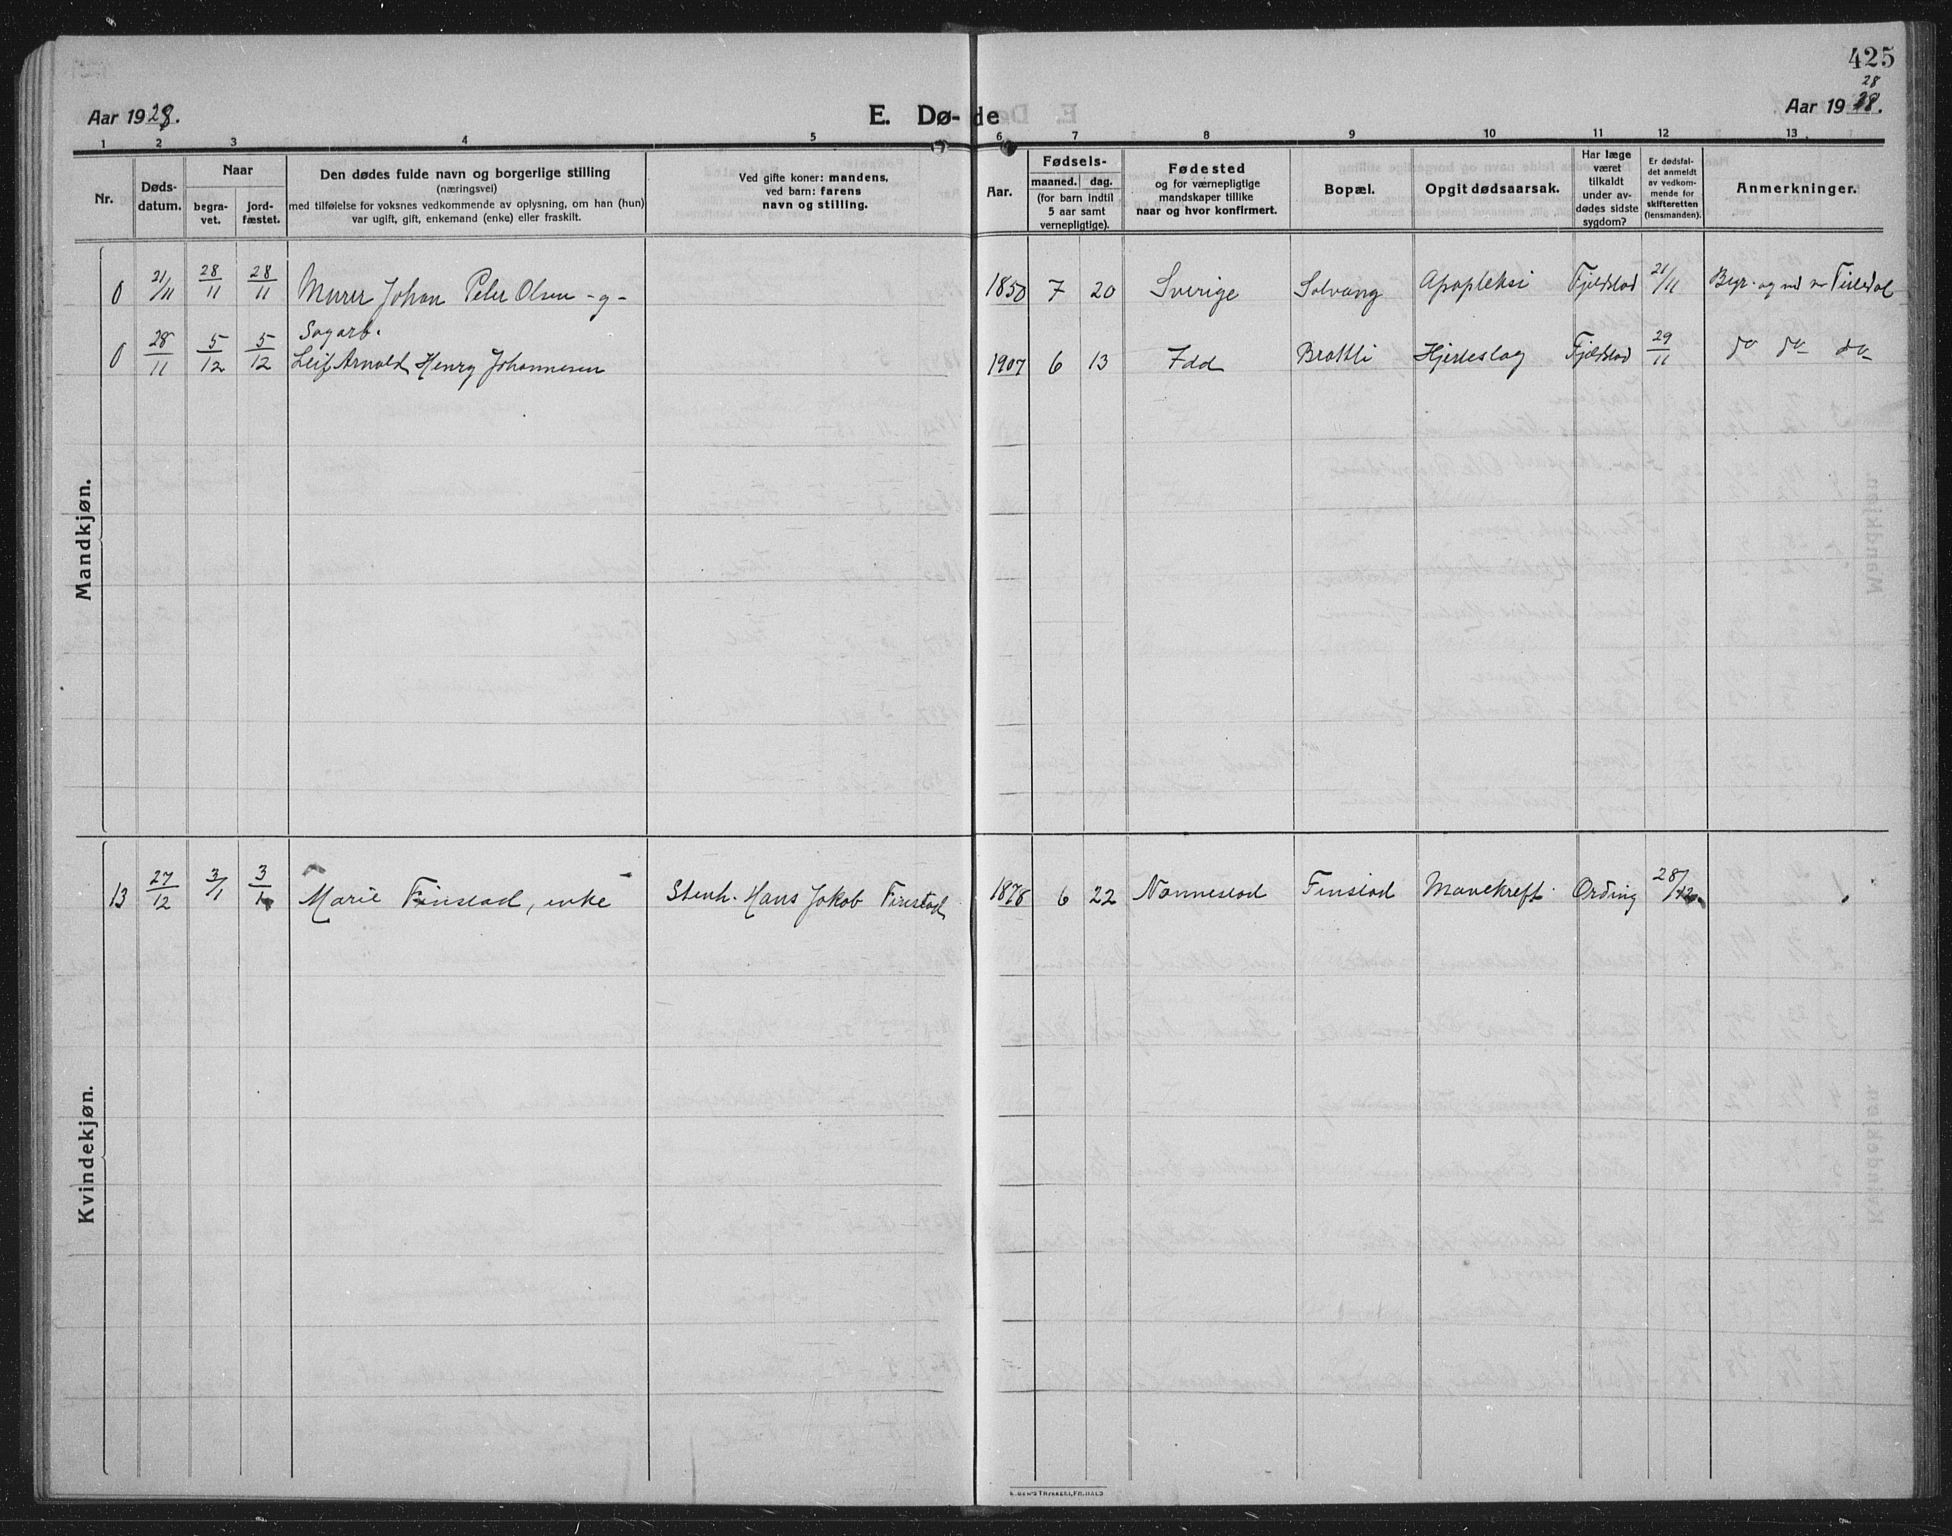 425
Aar 1928.
E. Dø- de
28
Aar 1928.
1 2 3 4 5 6 7 8 9 10 11 12 13
Nr.
Døds-
datum.
Naar
begra-
vet.
jord-
fæstet.
Den dødes fulde navn og borgerlige stilling
(næringsvei)
med tilføielse for voksnes vedkommende av oplysning, om han (hun)
var ugift, gift, enkemand (enke) eller fraskilt.
Ved gifte koner: mandens,
ved barn: farens
navn og stilling.
Aar.
Fødsels-
maaned. dag.
(for barn indtil
5 aar samt
vernepligtige).
Fødested
og for værnepligtige
mandskaper tillike
naar og hvor konfirmert.
Bopæl.
Opgit dødsaarsak.
Har læge
været
tilkaldt
under av-
dødes sidste
sygdom?
Er dødsfal-
det anmeldt
av vedkom-
mende for
skifteretten
(lensmanden).
Anmerkninger.
Mandkjøn.
0 21/11 28/11 28/11 Murer Johan Peter Olsen -g- 1850 7 20 Sverige Solvang Apopleksi Fjeldstad 21/11 Begr. og ved Tistedal
Sagarb.
0 28/11 5/12 5/12 Leif Arnold Henry Johannesen 1907 6 13 Idd Brattli Hjerteslag Fjeldstad 29/11 do do do
Kvindekjøn.
13 27/12 3/1 3/1 Marie Finstad, enke Stenh. Hans Jakob Finstad 1878 6 22 Nannestad Finstad Mavekreft Ording 28/12